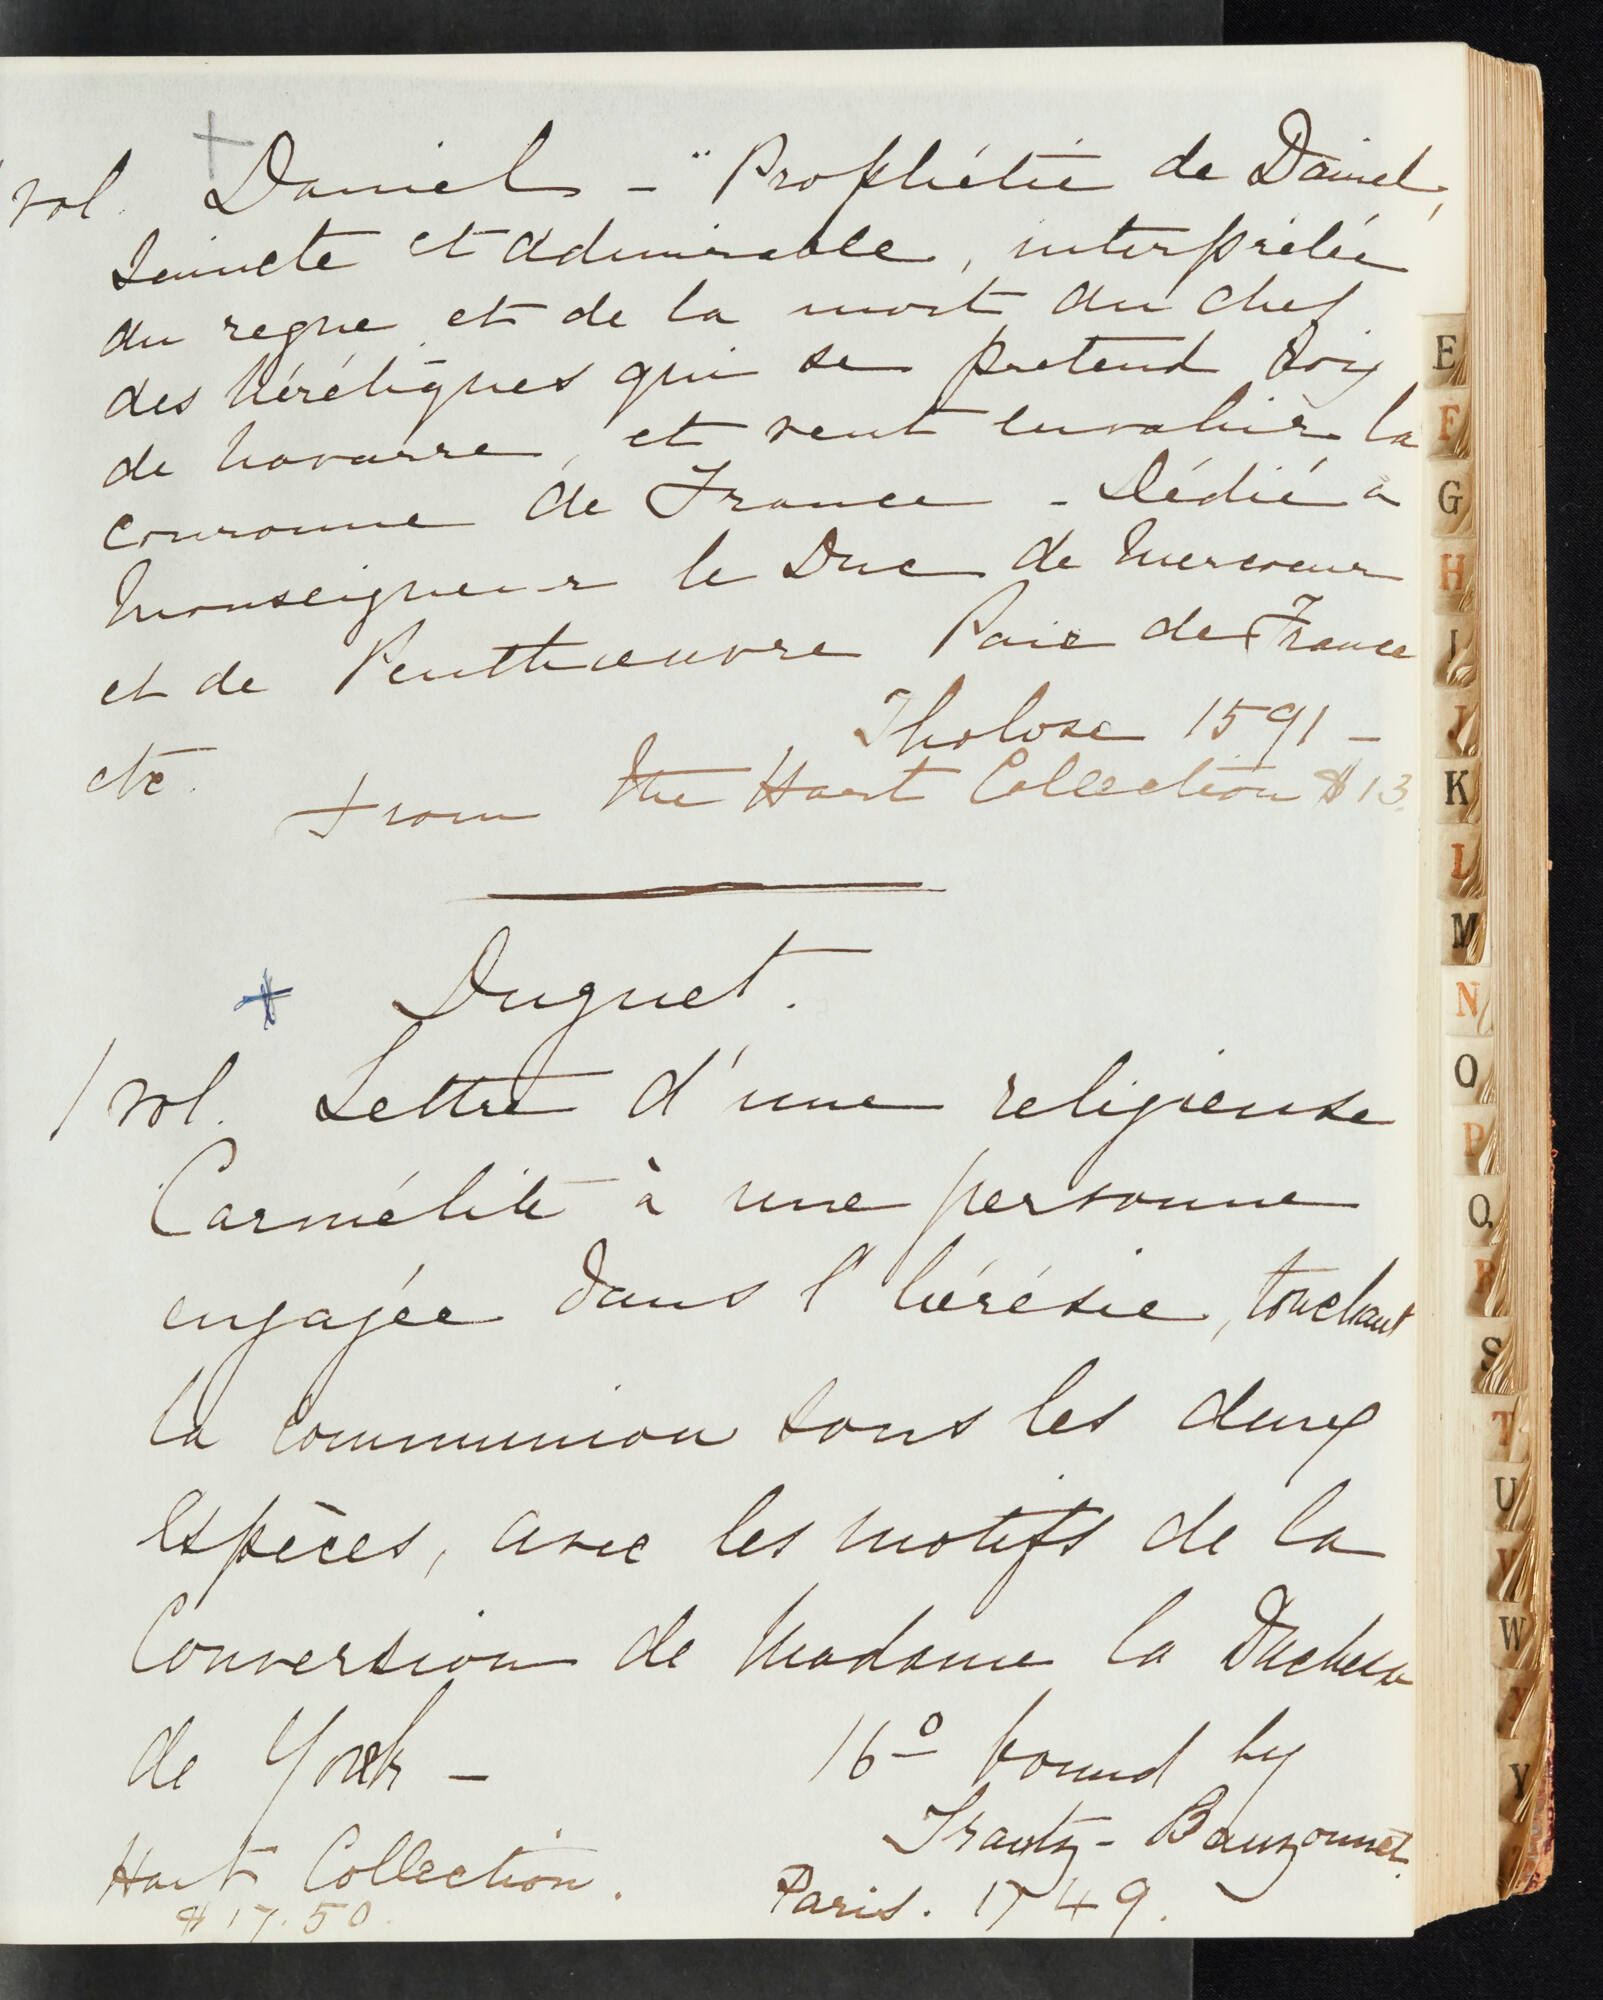 +
vol. Daniel – "Prophétie de Daniel,
Saincte et admirable, interprétée
du regne et de la mort du chef
des hérétiques qui se pretend Roy
de Navarre, et veut envahir la
couronne de France – Dédié à
Monseigneur le Duc de Mercoeur
et de Penthoeuvre Pair de France
etc. Tholose 1591 –
From the Hart Collection $13.
+ Duguet.
1 vol. Lettre d'une religieuse
Carmélite à une personne
engagée dans l'hérésie, touchant
la communion sous les deux
espèces, avec les motifs de la
Conversion de Madame la Duchesse
de York – 16º bound by
Trautz-Bauzonnet.
Hart Collection. Paris. 1749.
$17.50.
E
F
G
H
I
J
K
L
M
N
O
P
Q
R
S
T
U
V
W
X
Y